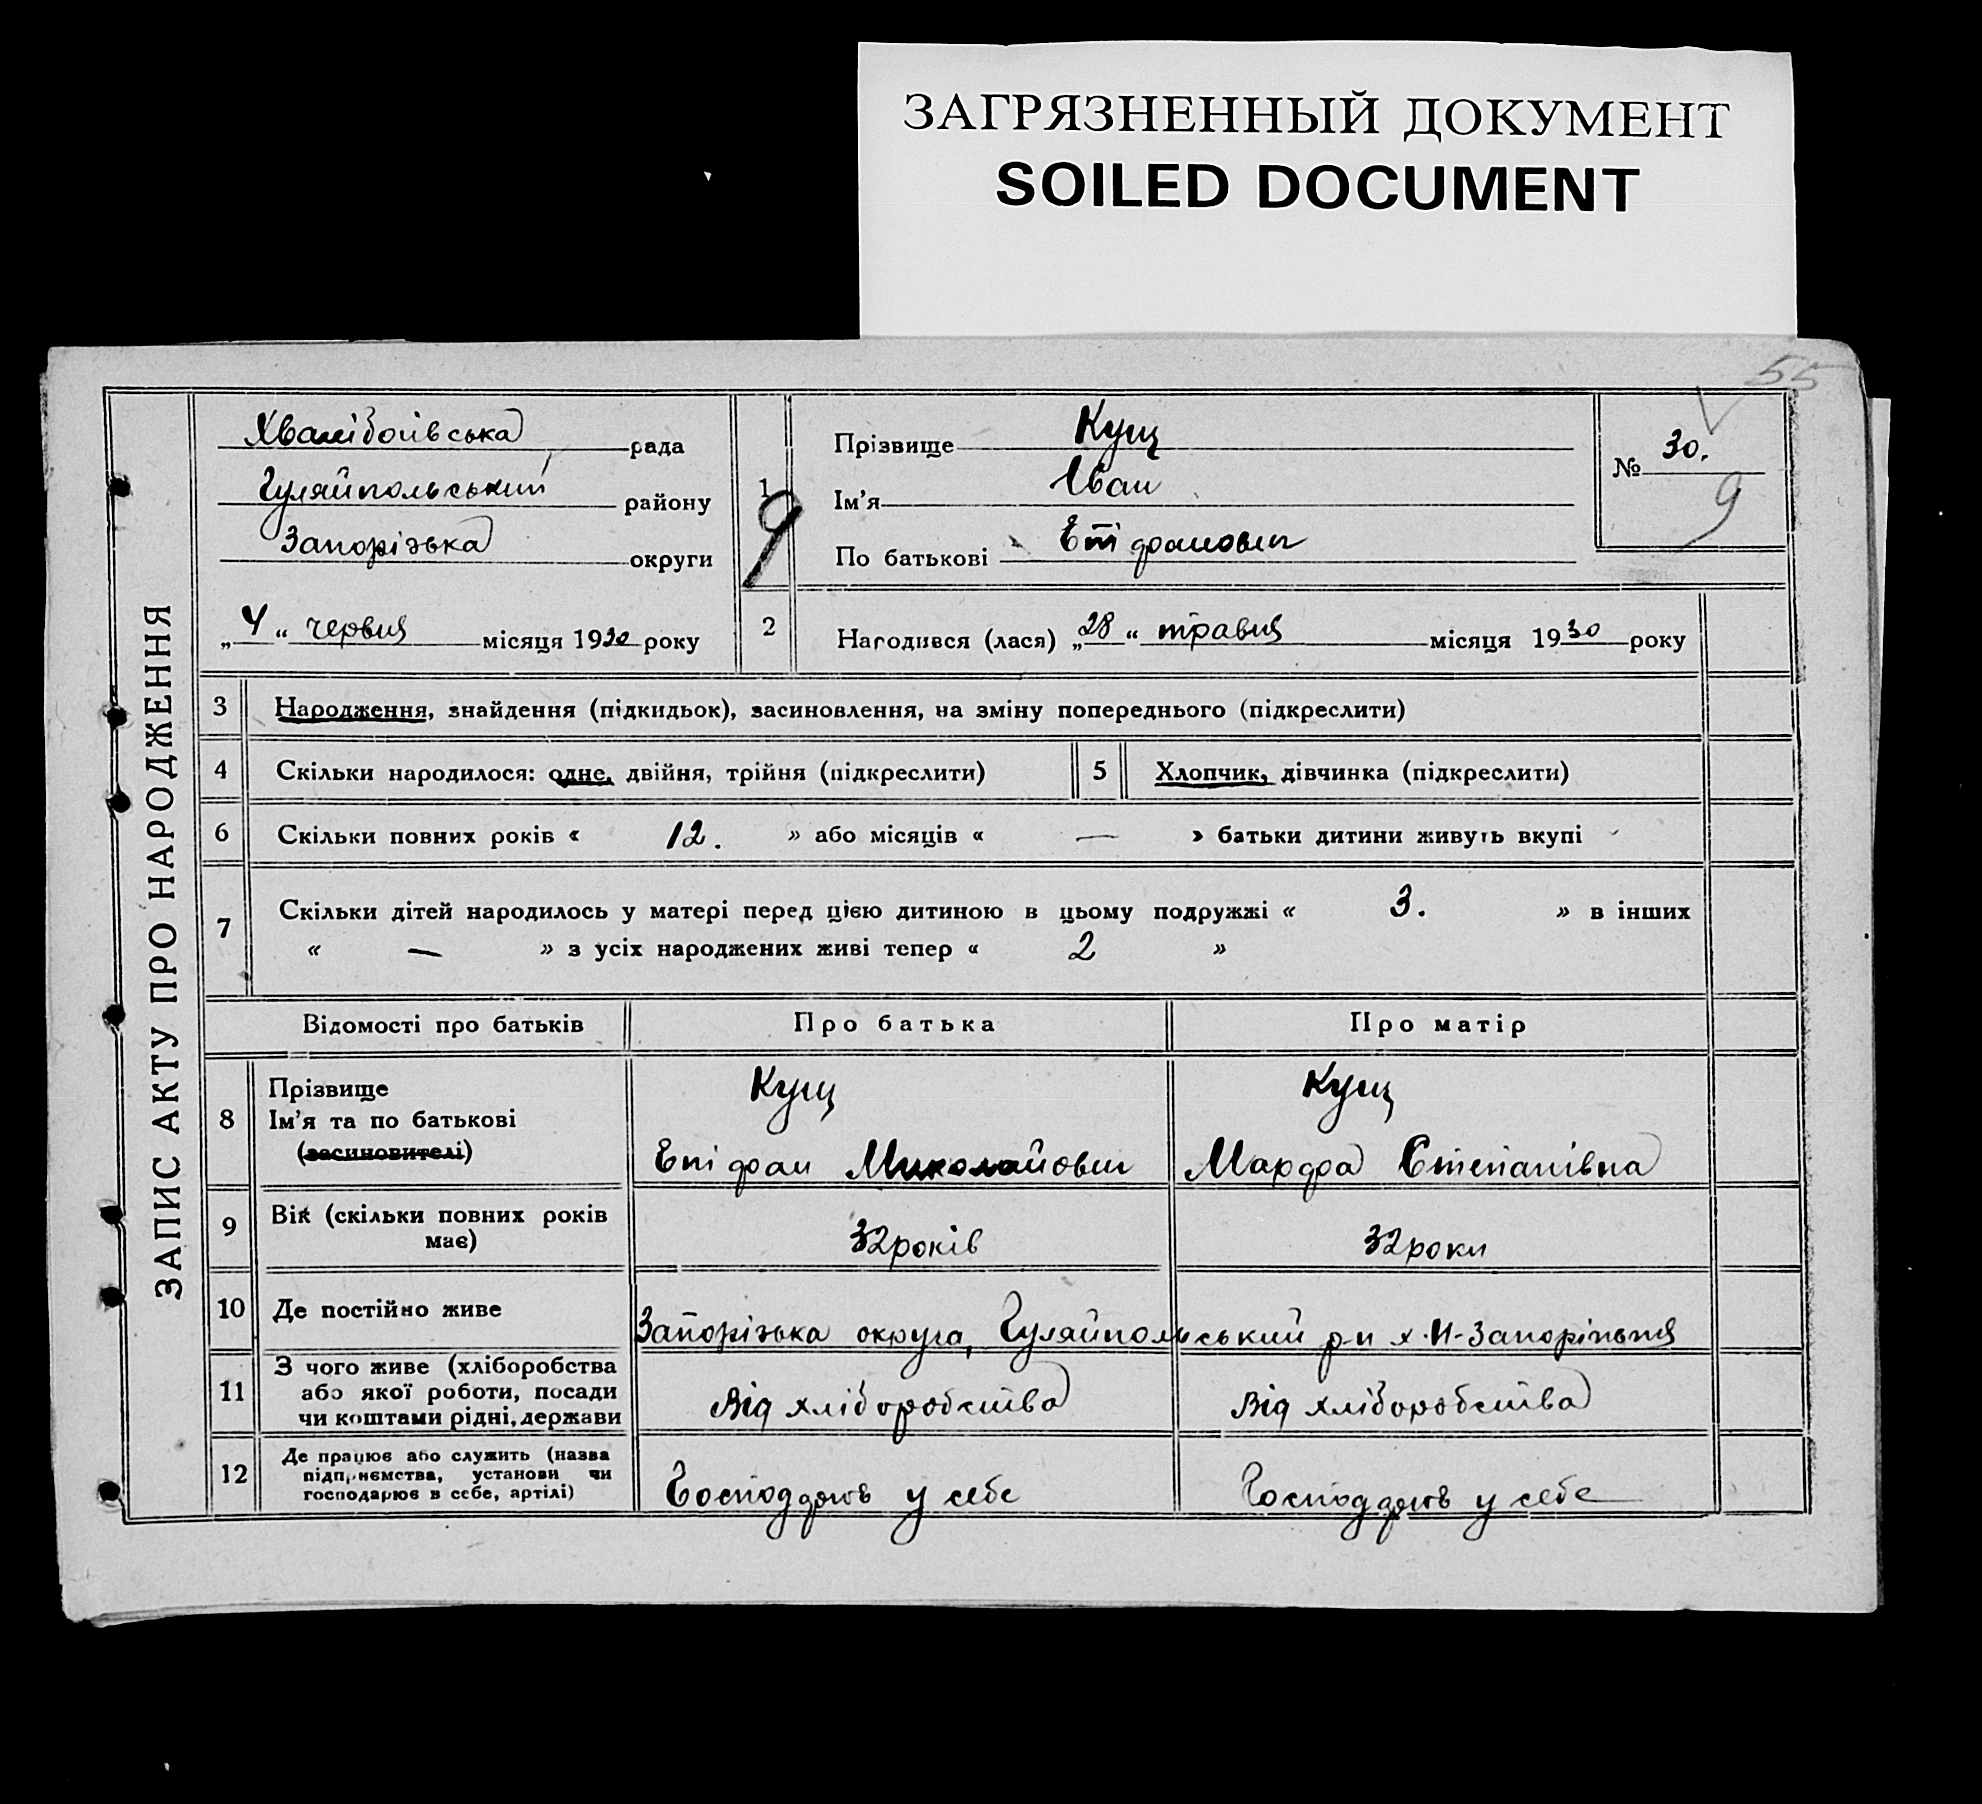 ЗАГРЯЗНЕННЫЙ ДОКУМЕНТ
SOILED DOCUMENT
55
ЗАПИС АКТУ ПРО НАРОДЖЕННЯ
Хвалібоївська рада
Гуляйпольський району
Запорізька округи
„4“ червня місяця 1930 року
1
9
Прізвище Кущ
Ім’я Іван
По батькові Епіфанович
№ 30.
9
2 Народився (лася) „28“ травня місяця 1930 року
3 Народження, знайдення (підкидьок), засиновлення, на зміну попереднього (підкреслити)
4 Скільки народилося: одне, двійня, трійня (підкреслити) 5 Хлопчик, дівчинка (підкреслити)
6 Скільки повних років « 12. » або місяців « — » батьки дитини живуть вкупі
7 Скільки дітей народилось у матері перед цією дитиною в цьому подружжі « 3. » в інших
« — » з усіх народжених живі тепер « 2 »
Відомості про батьків Про батька Про матір
8 Прізвище Кущ Кущ
Ім’я та по батькові
(засиновителі) Епіфан Миколайович Марфа Степанівна
9 Вік (скільки повних років має) 32 років 32 роки
10 Де постійно живе Запорізька округа, Гуляйпольський р-н х. Н-Запоріжжя
11 З чого живе (хліборобства
або якої роботи, посади
чи коштами рідні, держави Від хліборобства Від хліборобства
12 Де працює або служить (назва
підприємства, установи чи
господарює в себе, артілі) у себе у себе